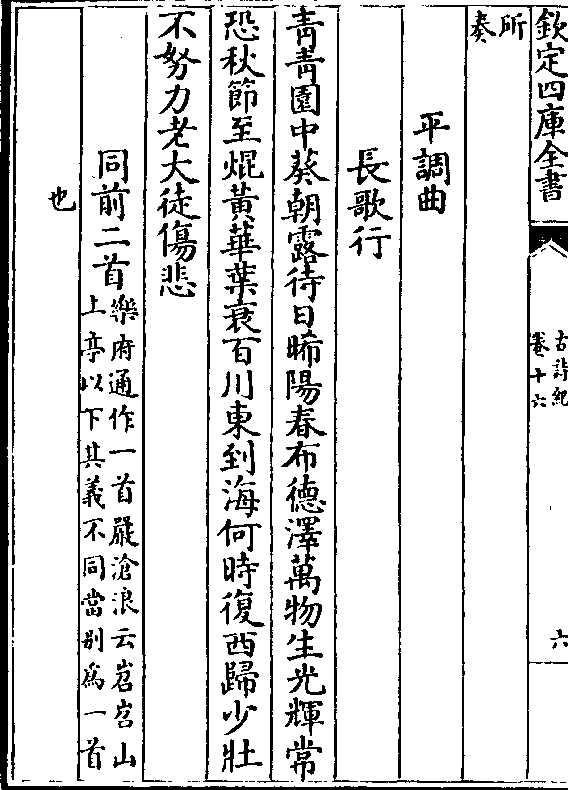 欽定四庫全書
古詩紀
卷十六
六
所
奏
平調曲
長歌行
青青園中葵朝露待日晞陽春布德澤萬物生光輝常
恐秋節至焜黃華葉衰百川東到海何時復西歸少壯
不努力老大徒傷悲
同前二首樂府通作一首嚴滄浪云岧岧山
上亭以下其義不同當別為一首
也